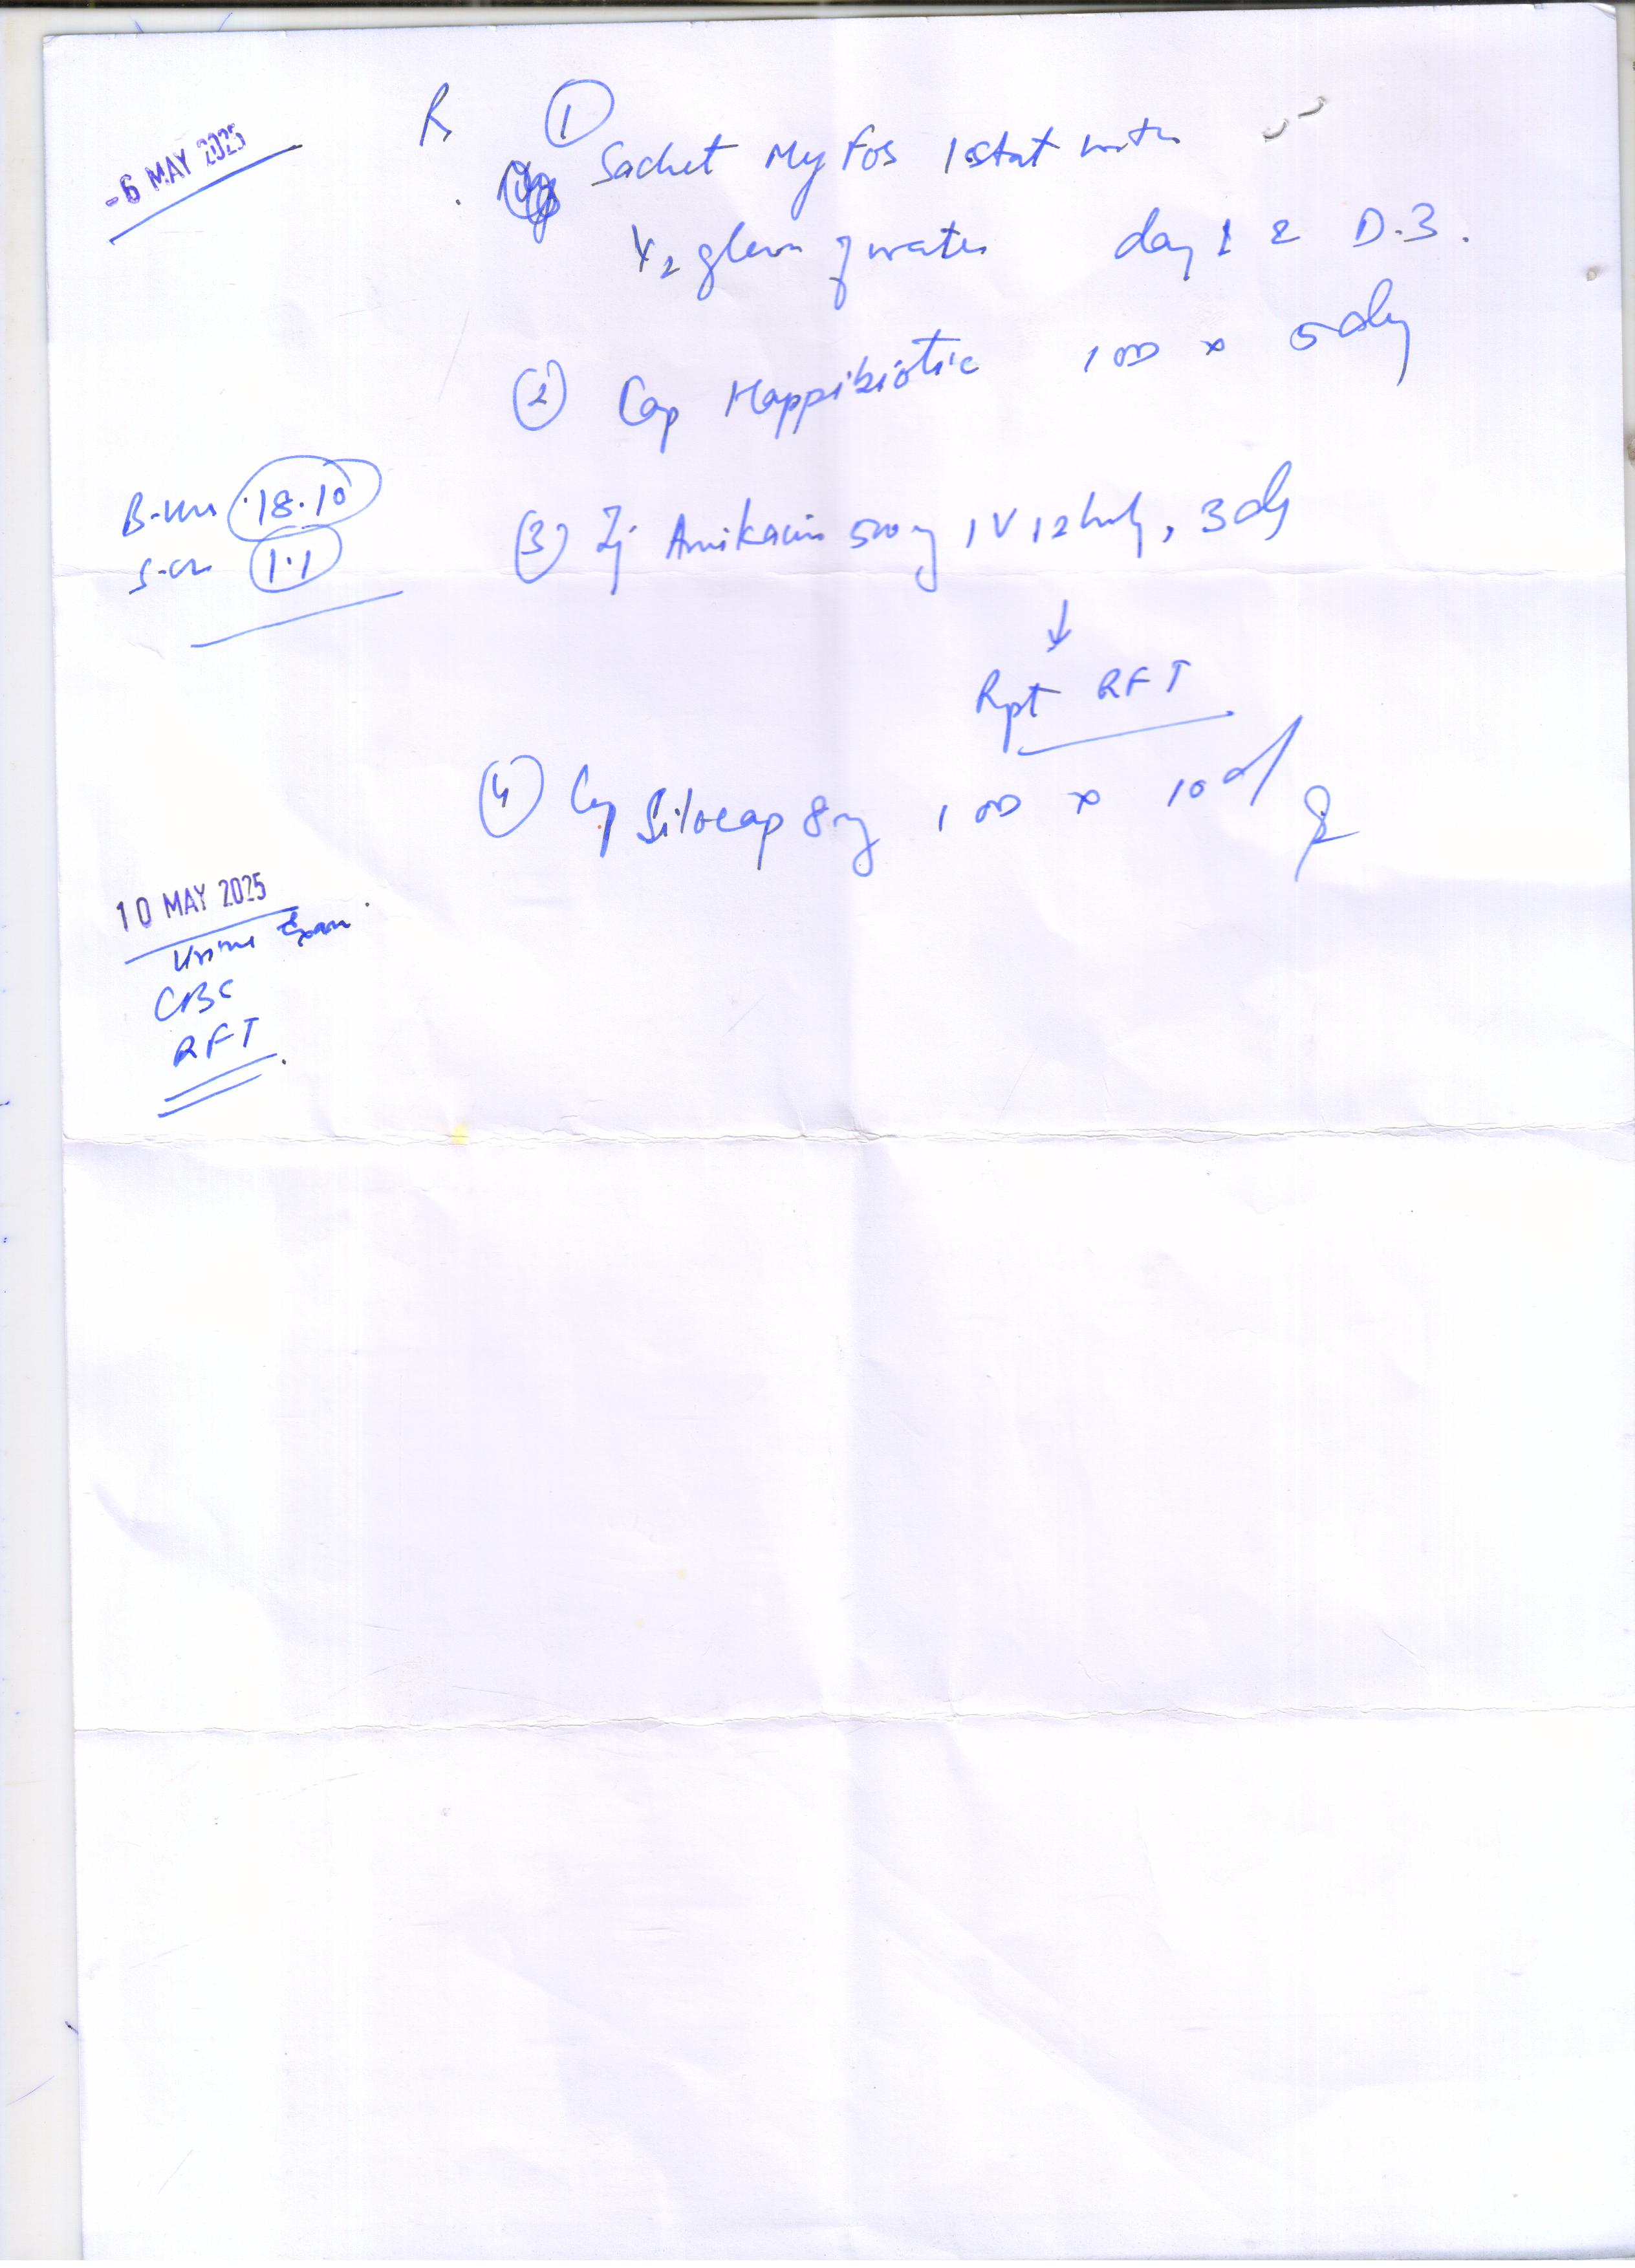 -6 MAY 2025
R
①
Sachet MyFos 1 stat with
1/2 glass of water day 1 & D.3.
② Cap Happibiotic 1 OD x 5 day
B-Urea 18.10
S-Cr 1.1
③ Inj Amikacin 500 mg IV 12 hrly, 3 ds
↓
Rpt RFT
④ Cap Silocap 8mg 1 OD x 10 d
10 MAY 2025
Urine Exam
CBC
RFT